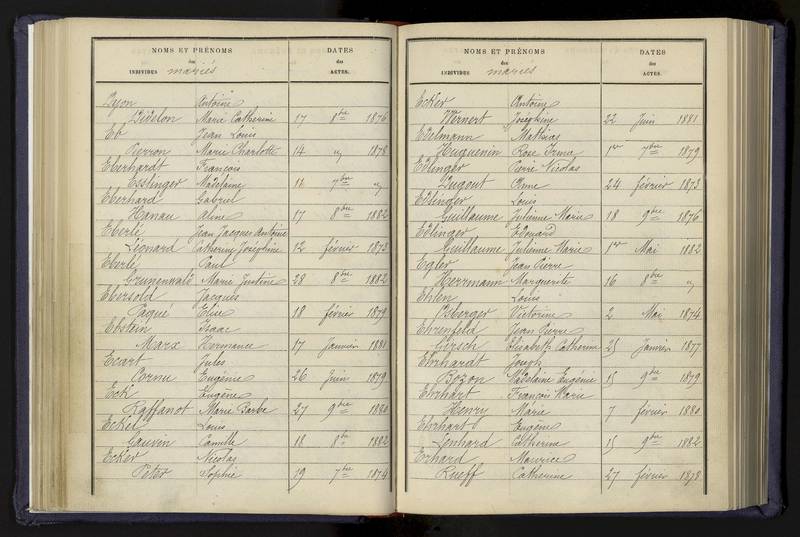 NOMS ET PRÉNOMS DATES
des des
INDIVIDUS mariés ACTES.
Dyon Antoine
Didelon Marie Catherine 17 8bre 1876
Eb Jean Louis
Pierron Marie Charlotte 14 „ 1878
Eberhardt François
Esslinger Madelaine 11 7bre „
Eberhard Gabriel
Hanau Aline 17 8bre 1882
Eberlé Jean Jacques Antoine
Léonard Catherine Joséphine 12 février 1873
Eberlé Paul
Grunenwald Marie Justine 28 8bre 1882
Ebersold Jacques
Paqué Elise 18 février 1879
Ebstein Isaac
Marx Hermance 17 Janvier 1881
Ecart Jules
Cornu Eugénie 26 Juin 1879
Eck Eugène
Raffanot Marie Barbe 27 9bre 1880
Eckel Louis
Gauvin Camille 18 8bre 1882
Ecker Nicolas
Peter Sophie 19 7bre 1874
NOMS ET PRÉNOMS DATES
des des
INDIVIDUS mariés ACTES.
Ecker Antoine
Wernert Joséphine 22 Juin 1881
Edelmann Mathias
Huguenin Rose Irma 1er 7bre 1879
Edlinger Pierre Nicolas
Dugout Anne 24 février 1873
Edlinger Louis
Guillaume Julienne Marie 18 9bre 1876
Edlinger Edouard
Guillaume Julienne Marie 1er Mai 1882
Egler Jean Pierre
Herrmann Marguerite 16 8bre „
Ehlen Louis
Osberger Victorine 2 Mai 1874
Ehrenfeld Jean Pierre
Girsch Elisabeth Catherine 25 Janvier 1877
Ehrhardt Joseph
Bozon Madelaine Eugénie 15 9bre 1879
Ehrhart François Marie
Henry Marie 7 février 1880
Ehrhart Eugène
Lenhard Catherine 15 9bre 1882
Erhard Maurice
Rueff Catherine 27 février 1878